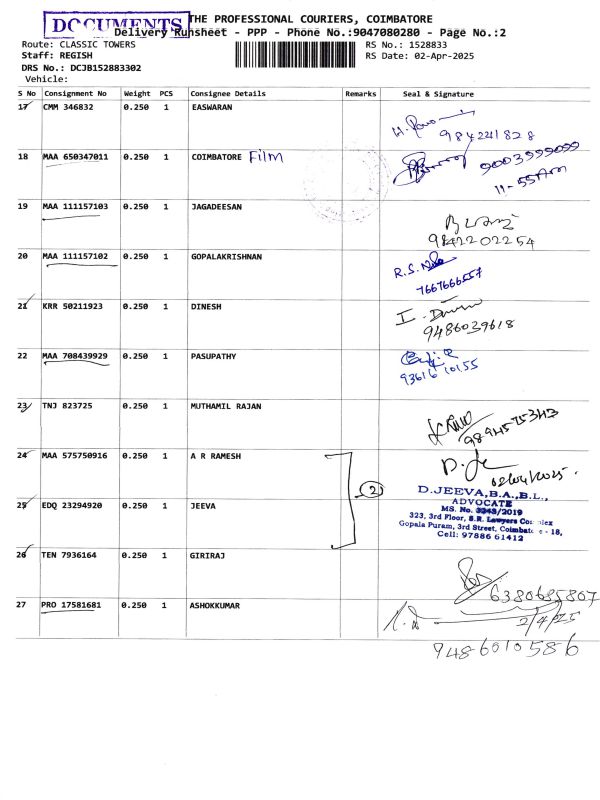 DOCUMENTS
THE PROFESSIONAL COURIERS, COIMBATORE
Delivery Runsheet - PPP - Phone No.:9047080280 - Page No.:2
Route: CLASSIC TOWERS
Staff: REGISH
DRS No.: DCJB152883302
Vehicle:
RS No.: 1528833
RS Date: 02-Apr-2025
S No Consignment No Weight PCS Consignee Details Remarks Seal & Signature
17 CMM 346832 0.250 1 EASWARAN
9842241828
18 MAA 650347011 0.250 1 COIMBATORE Film
9003999099
11-55Am
19 MAA 111157103 0.250 1 JAGADEESAN
9842202254
20 MAA 111157102 0.250 1 GOPALAKRISHNAN
7667666557
21 KRR 50211923 0.250 1 DINESH
9486039618
22 MAA 708439929 0.250 1 PASUPATHY
93616 10155
23 TNJ 823725 0.250 1 MUTHAMIL RAJAN
9894575343
24 MAA 575750916 0.250 1 A R RAMESH
02/04/2025.
2
25 EDQ 23294920 0.250 1 JEEVA
D.JEEVA,B.A.,B.L.,
ADVOCATE
MS. No. 3243/2019
323, 3rd Floor, S.R. Lawyers Complex
Gopala Puram, 3rd Street, Coimbatore - 18,
Cell: 97886 61412
26 TEN 7936164 0.250 1 GIRIRAJ
6380685807
27 PRO 17581681 0.250 1 ASHOKKUMAR
2/4/25
9486010586